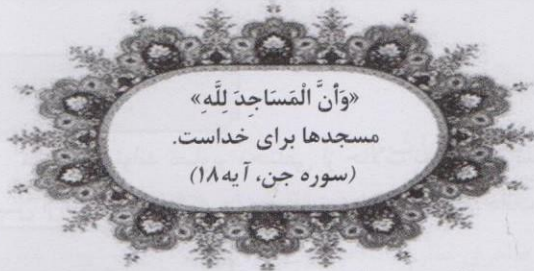 «وَأَنَّ الْمَسَاجِدَ لِلَّهِ»
مسجدها برای خداست.
(سوره جن، آیه ۱۸)